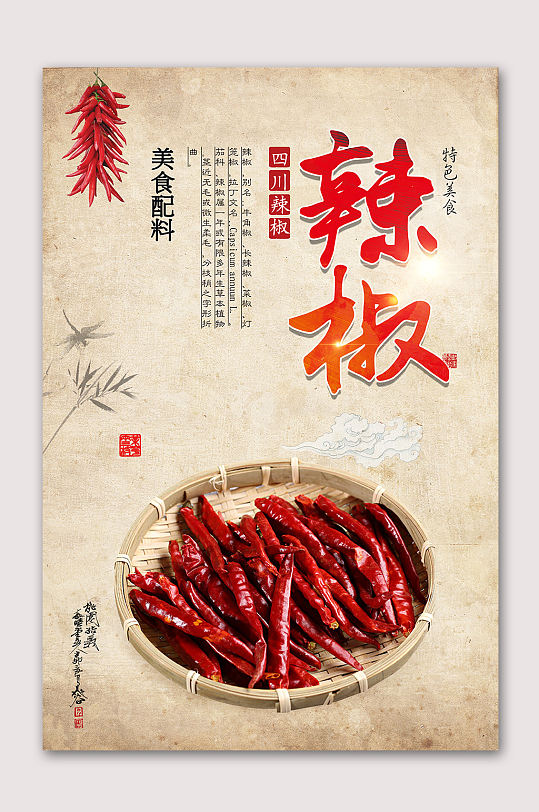 特色美食
辣椒
四川辣椒
辣椒，别名：牛角椒、长辣椒、菜椒、灯
笼椒，拉丁文名：Capsicum annuum L.
茄科、辣椒属一年或有限多年生草本植物
。茎近无毛或微生柔毛，分枝稍之字形折
曲
美食配料